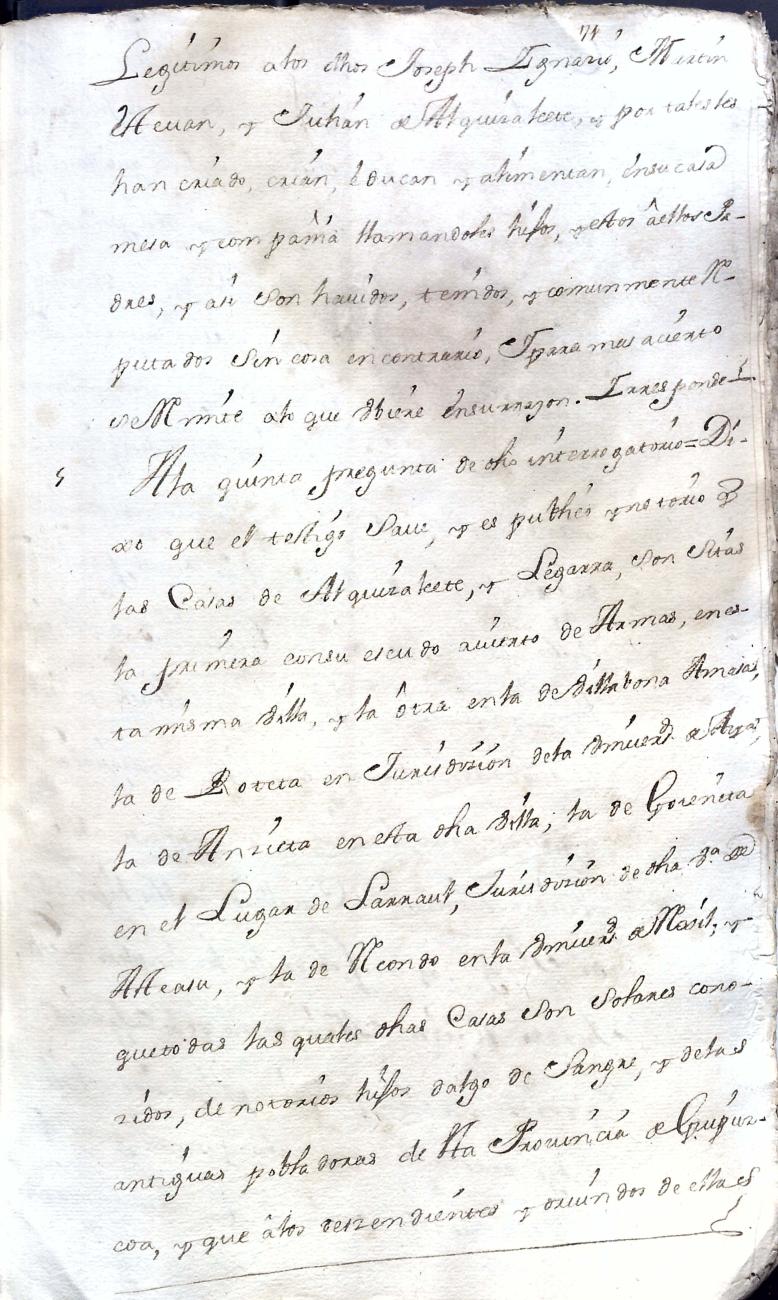 74
Legítimos alos dhos Joseph Ignacio, Martin
y Julián de Alquizalete, y por tales les
han criado, crían, educan y alimentan, ensu casa
mesa y compañia llamandoles hijos, y estos âellos Pa-
dres, y asi son hauidos, tenidos, y comunmente Re-
putados sin cosa encontrario, Ypara mas acierto
se Remite alo que dbiere ensurrazon. Irresponde
5 Ala quinta pregunta de dho interrogatorio= Di-
xo que el testigo saue, y es publico y notorio q
las Casas de Alquizalete, y Legarra, son sitas
la primera consu escudo auierto de Armas, enes-
ta misma Villa, y la ôtra enla de Villabona Amasa,
la de Roteta en Jurisdizion dela Vniuersd. de Aya,
la de Anzieta enesta dha Villa, la de Goieneta
en el Lugar de Larraul, Jurisdizion de dha Va. de
y la de Recondo enla Vniuersd. de
quetodas las quales dhas Casas son solares cono-
zidos, de notorios hijos dalgo de sangre, y delas
antiguas pobladoras de Sta Prouincia de Guipuz-
coa, y que âlos deszendientes y oriundos de ella es